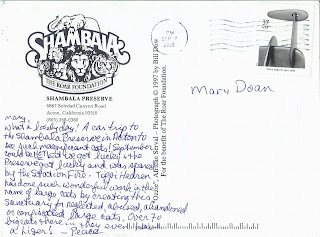 SHAMBALA
THE ROAR FOUNDATION
SHAMBALA PRESERVE
6867 Soledad Canyon Road
Acton, California 93510
(805) 268-0380
Mary -
What a lovely day! A car trip to
the Shambala Preserve in Acton to
see such magnificent cats! September
could be HOT but we got lucky & the
Preserve got lucky and was spared
by the Station Fire. Tippi Hedren
has done such wonderful work in the
name of large cats by creating this
sanctuary for neglected, abused, abandoned
or confiscated large cats. Over 70
big cats there - they even have
a Liger! - Peace
Photograph © 1997 by Bill
For the benefit of The Roar Foundation.
SEP
2009
37
Mary Doan